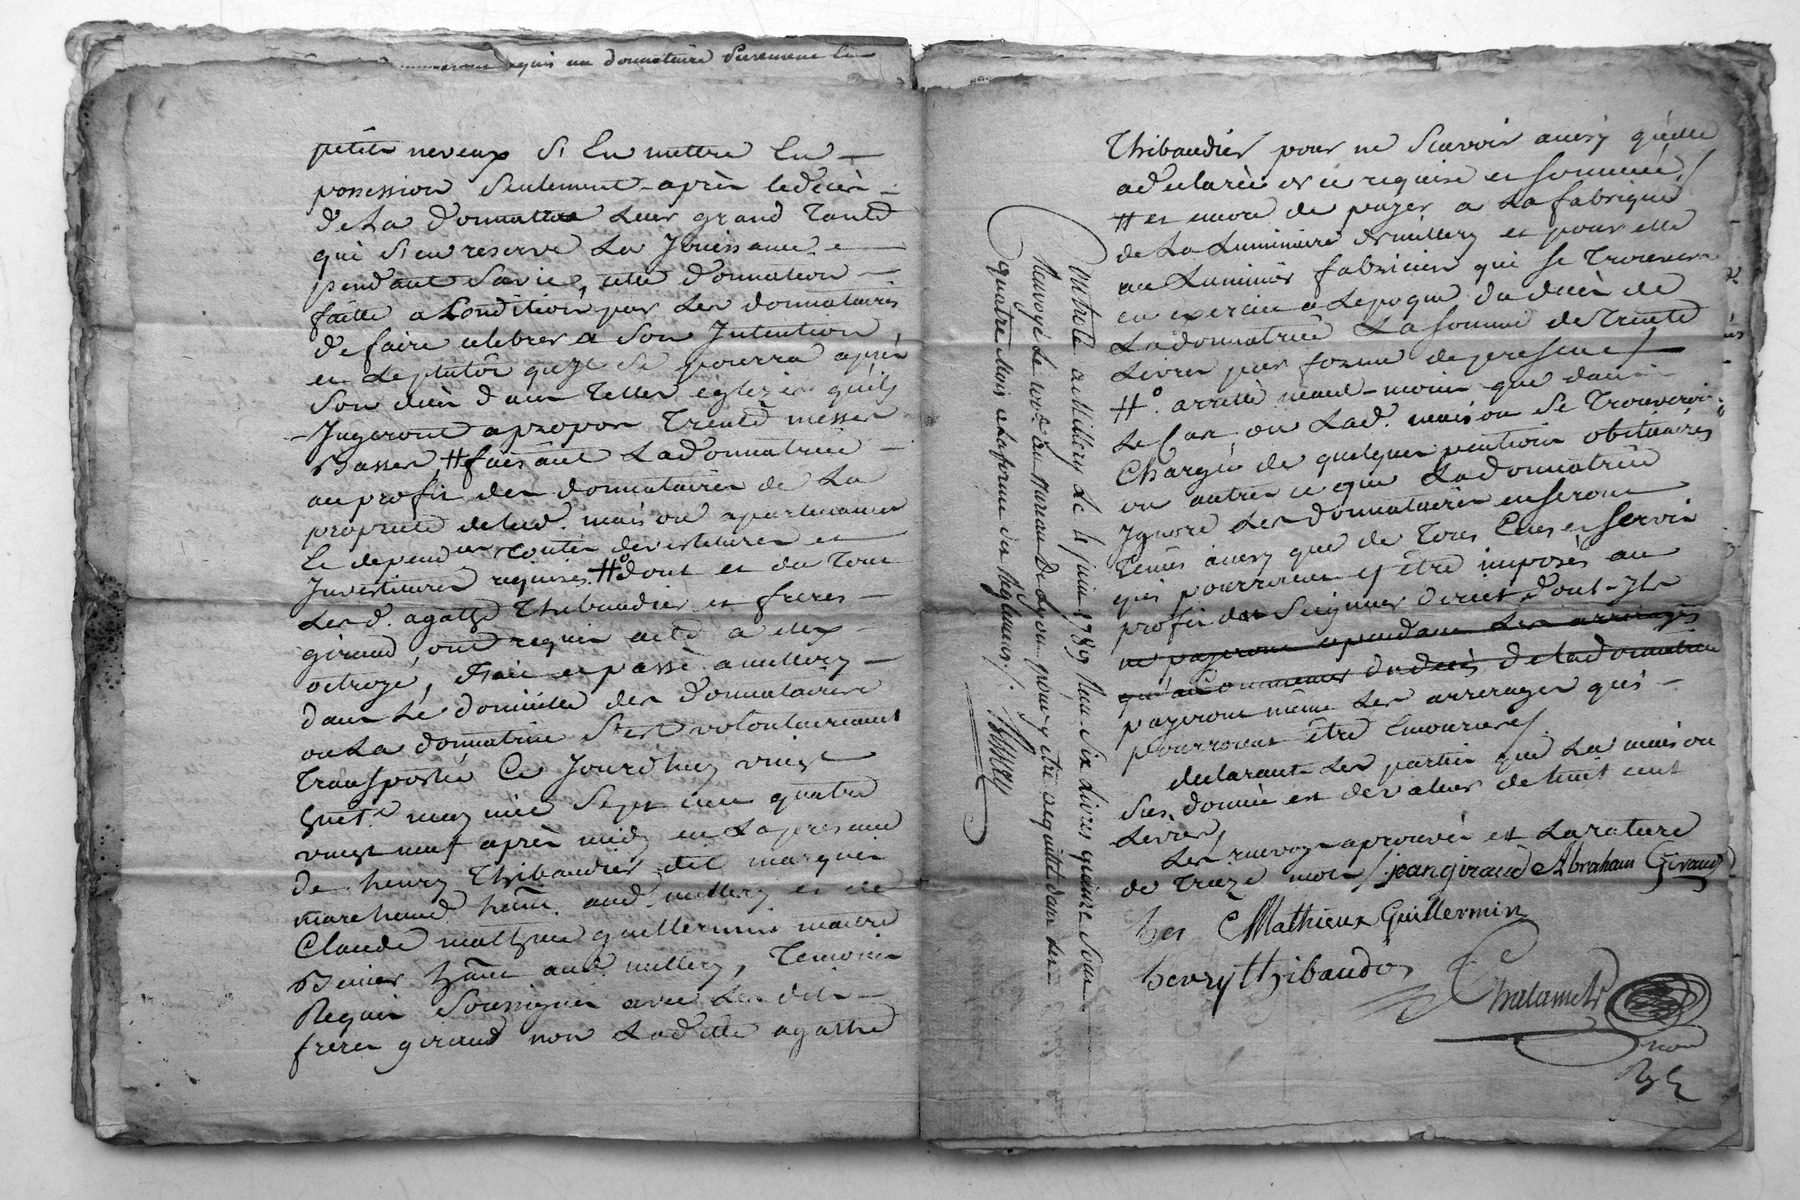 requis au donnataire Surement En
petits neveux S'En mettre En
possession Seulement après le décès
de La donnattee Leur grand Tante
qui S'en reserve La Jouissance
pendant Sa vie, cette donnation
faitte a Condition par Les donnataires
de faire celebrer a Son Intention
et Le plutôt qu'Il Se pourra après
Son décès dans Telles eglizes qu'ils
Jugeront apropos Trente messes
Basses # faisant La donnatrice
au profit des donnataires de La
proprieté de lad. maison apartenances
Et depend.ces Toutes devestitures et
Investitures requises. # dont et du Tout
Lesd. agathe Thibaudier et freres
giraud ont requis acte a eux
octroyé, Fait et passé a millery
dans Le domicile des donnataires
ou La donnatrice S'est volontairement
Transportée Ce Jourdhuy vingt
huit.e may mil Sept cent quatre
vingt neuf après midy en La presence
de henry Thibaudier dit marquis
marchand ha͠nt aud. millery et de
Claude mathieu guillermin maitre
Benier ha͠nt aud. millery, Temoins
Requis Soussignés avec Les dits
freres giraud non Ladite agathe
Thibaudier pour ne Scavoir ainsy qu'elle
a declaré de ce requise et Sommée /
# et encore de payer a La fabrique
de La Luminaire de millery et pour elle
au Luminier fabricien qui Se Trouvera
en exercice a Lepoque du décès de
La donnatrice La Somme de Trente
Livres par forme de present /
#° arretté neanl-moins que dans
Le Cas, ou Lad. maison Se Trouveroit
Chargée de quelques pentions obituaires
ou autres ce que La donnatrice
Ignore Les donnataires en Seront
Tenus ainsy que de Tous Cens et Servis
qui pourroient y être imposés au
profit du Seigneur direct dont Ils
ne payeront cependant Les arrerages
qu'a Commencer du décès de la donnatrice
payeront même Les arrerages qui
pourroient être Encourus /
declarants Les parties que La maison
Sus donnée est de valeur de huit cent
Livres /
Les renvoys aprouvés et La rature
de Treize mots / jean giraud Abraham Giraud
Mathieux Guillermin
henry thibaudier
Chalamel
nore
Controllé a Millery Le 11 juin 1789 Reçu Six Livres quinze Sous
Renvoyé Le cert. au Bureau De Lyon pour y être acquitté dans Les
quatre Mois a La forme du Reglement /.